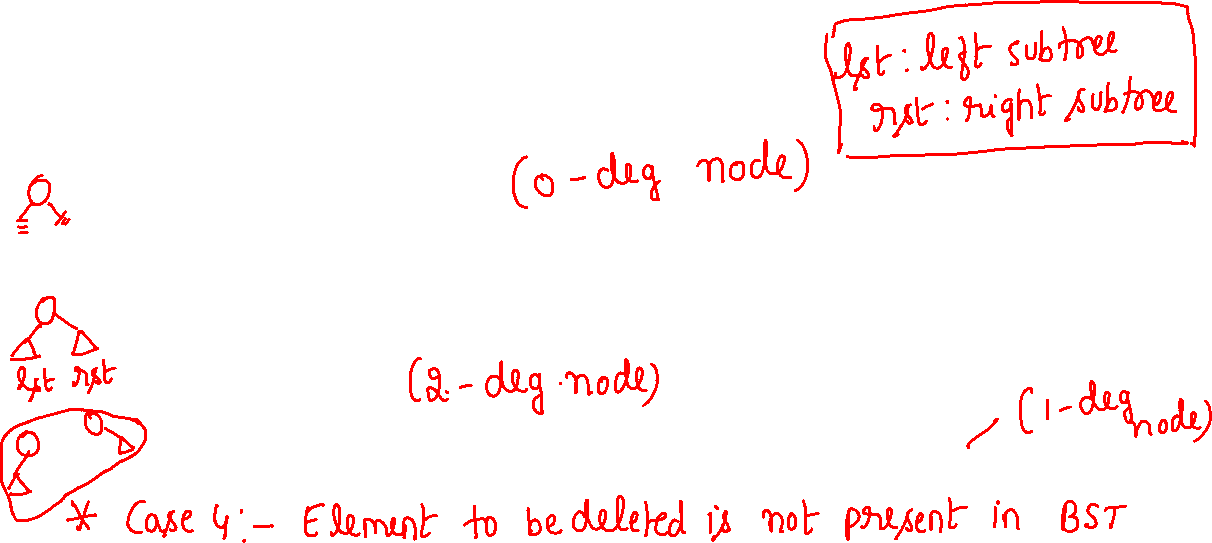 lst : left subtree
rst : right subtree
(0 - deg node)
lst rst
(2 - deg node)
(1 - deg node)
* Case 4 :- Element to be deleted is not present in BST